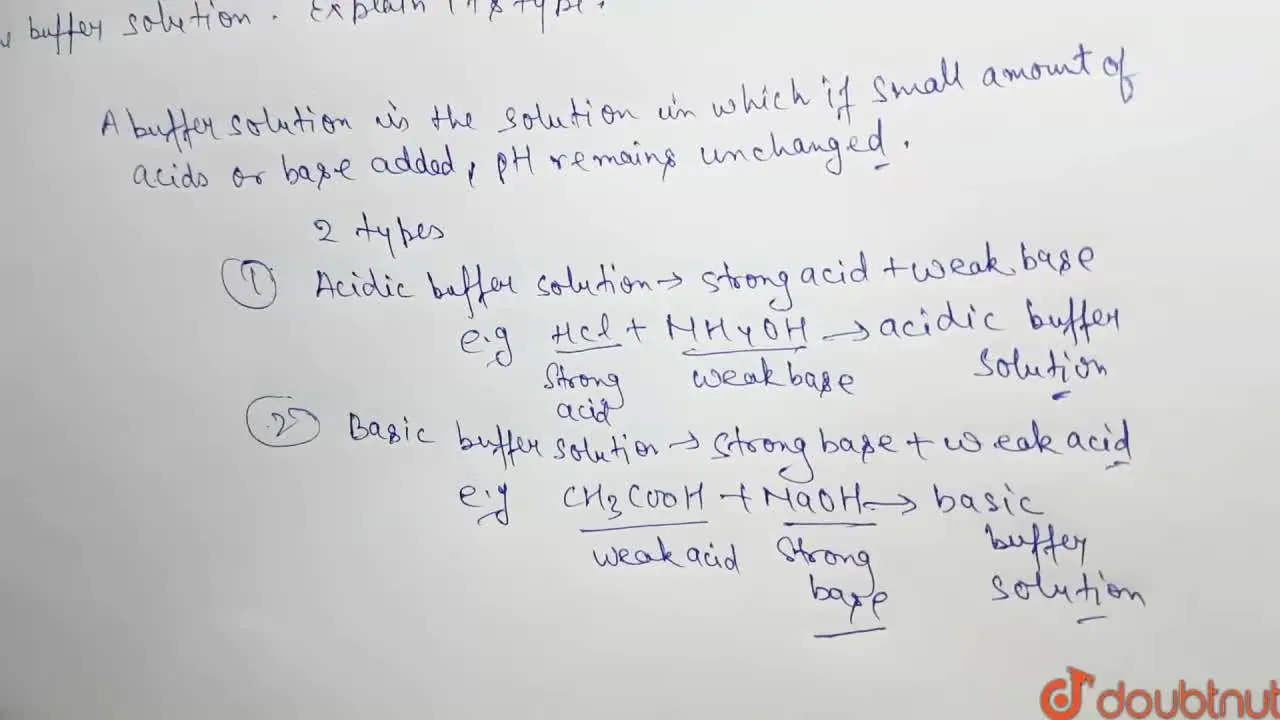 buffer solution. Explain its type.
A buffer solution is the solution in which if small amount of
acids or base added, pH remains unchanged.
2 types
① Acidic buffer solution → strong acid + weak base
e.g HCl + NH4OH → acidic buffer
strong weak base solution
acid
② Basic buffer solution → strong base + weak acid
e.g CH3COOH + NaOH → basic
weak acid strong buffer
base solution
doubtnut